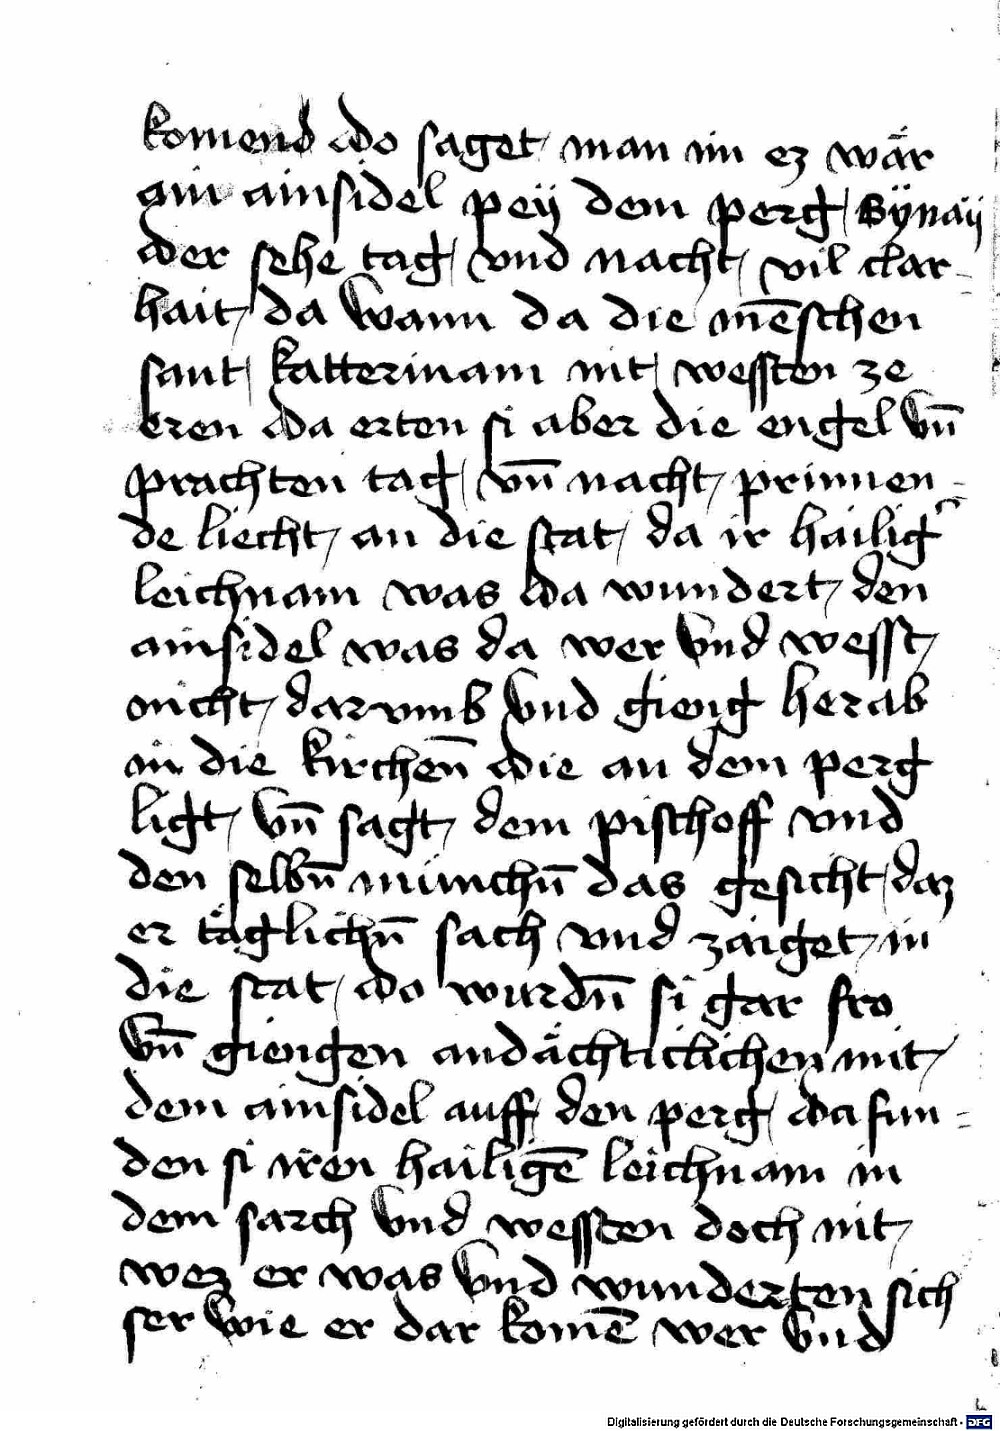 komend do saget man im ez wår
ain ainsidel peÿ dem perg Sÿnaÿ
der sehe tag vnd nacht vil clar-
hait da wann da die mēschen
sant katterinam nit wessten ze
eren da erten si aber die engel vn̄
prachten tag vn̄ nacht prinnen-
de liecht an die stat da ir hailig
leichnam was da wundert den
ainsidel was da wer vnd wesst
nicht darvmb vnd gieng herab
in die kirchen̄ die an dem perg
ligt vn̄ sagt dem pischoff vnd
den selbn̄ münchn̄ das gesicht daz
er täglichn̄ sach vnd zaiget in
die stat do wurdn̄ si gar fro
vn̄ giengen andächticlichen mit
dem ainsidel auff den perg da fun-
den si iren hailigē leichnam in
dem sarch vnd wessten doch nit
wez er was vnd wunderten sich
ser wie er dar komē wer vnd
Digitalisierung gefördert durch die Deutsche Forschungsgemeinschaft - DFG